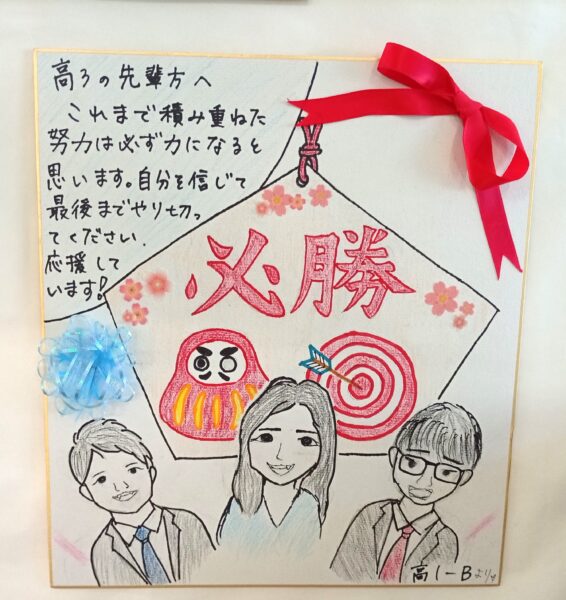 高3の先輩方へ
これまで積み重ねた
努力は必ず力になると
思います。自分を信じて
最後までやり切っ
てください.
応援して
います!
必勝
高1-Bより